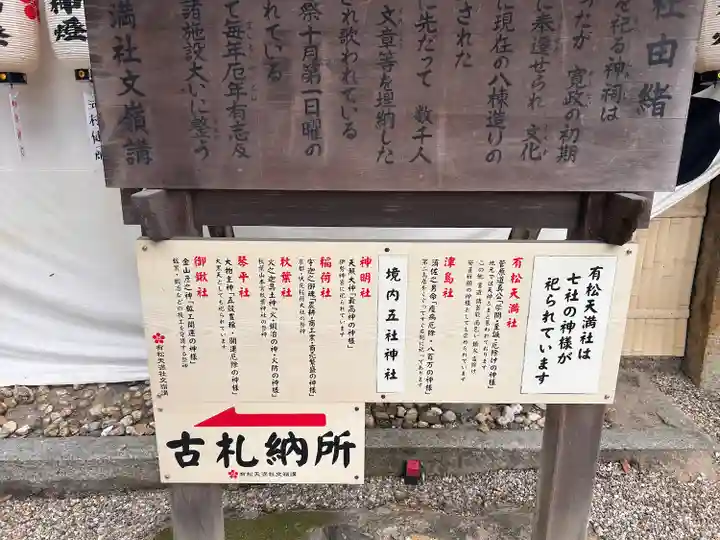 社由緒
を祀る神祠は
ったが 寛政の初期
に奉遷せられ 文化
に現在の八棟造りの
された
に先だって 数千人
文章等を埋納した
され歌われている
祭十月第一日曜の
れている
て毎年厄年有志及
諸施設大いに整う
満社文嶺講
神燈
有松天満社は
七社の神様が
祀られています
有松天満社
菅原道真公「学問・至誠・厄除けの神様」
津島社
須佐之男命「疫病厄除・八百万の神様」
境内五社神社
神明社
天照大神「最高神の神様」
伊勢神宮に祀られています
稲荷社
宇迦之御魂「農耕・商工業・商売繁盛の神様」
秋葉社
火之迦具土神「火・鍛冶の神・火防の神様」
琴平社
大物主神「五穀豊穣・開運厄除の神様」
御鍬社
金山彦之神「鉱工開運の神様」
有松天満社文嶺講
古札納所
有松天満社文嶺講